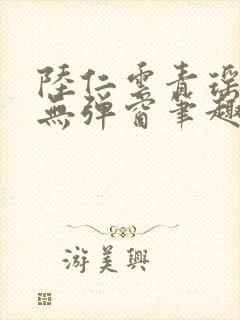 陸仁雲青瑤
無彈窗筆趣
游美興